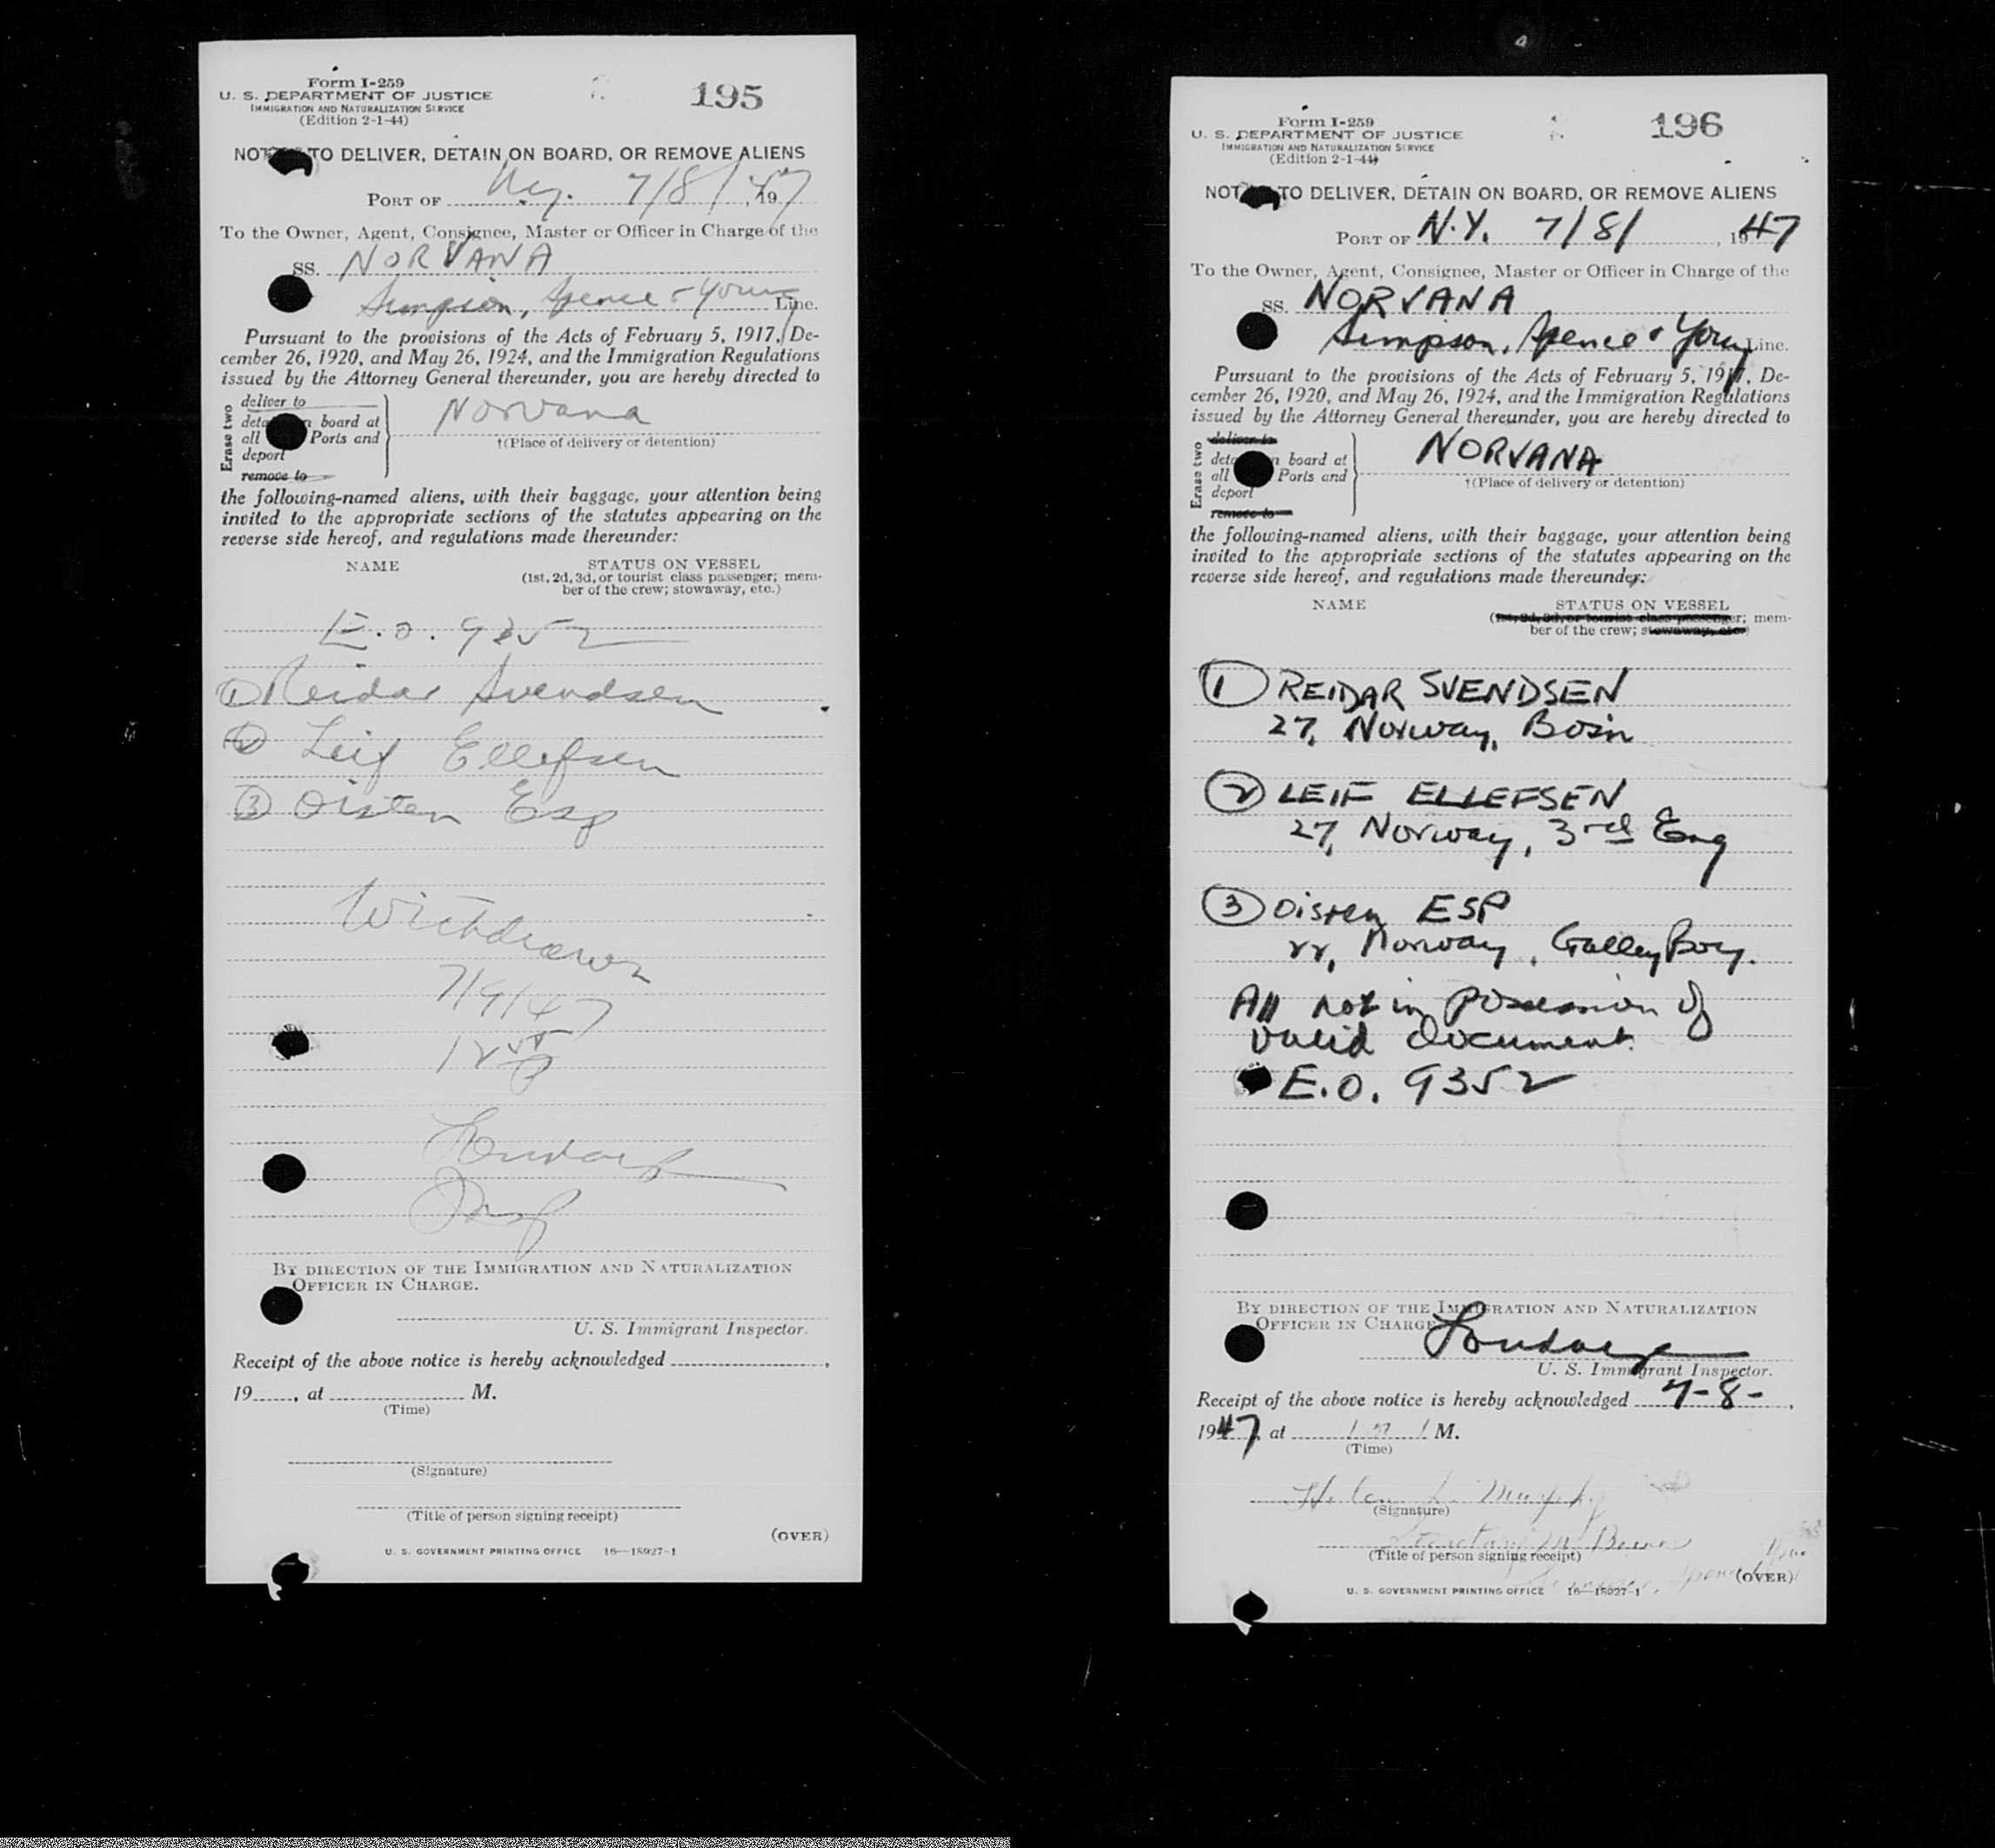 Form I-259
U. S. DEPARTMENT OF JUSTICE
IMMIGRATION AND NATURALIZATION SERVICE
(Edition 2-1-44)
195
TO DELIVER, DETAIN ON BOARD, OR REMOVE ALIENS
PORT OF N.Y. 7/8/, 1947
To the Owner, Agent, Consignee, Master or Officer in Charge of the
SS. NORVANA
Simpson, Spence & Young Line.
Pursuant to the provisions of the Acts of February 5, 1917, De-
cember 26, 1920, and May 26, 1924, and the Immigration Regulations
issued by the Attorney General thereunder, you are hereby directed to
Erase two
deliver to
board at
all Ports and
deport
remove to
Norvana
†(Place of delivery or detention)
the following-named aliens, with their baggage, your attention being
invited to the appropriate sections of the statutes appearing on the
reverse side hereof, and regulations made thereunder:
NAME STATUS ON VESSEL
(1st, 2d, 3d, or tourist class passenger; mem-
ber of the crew; stowaway, etc.)
E.O. 9352
① Reidar Svendsen
② Leif Ellefsen
③ Oisten Esp
Withdrawn
7/9/47
BY DIRECTION OF THE IMMIGRATION AND NATURALIZATION
OFFICER IN CHARGE.
U. S. Immigrant Inspector.
Receipt of the above notice is hereby acknowledged
19, at M.
(Time)
(Signature)
(Title of person signing receipt)
(OVER)
U. S. GOVERNMENT PRINTING OFFICE 16—18927-1
Form I-259
U. S. DEPARTMENT OF JUSTICE
IMMIGRATION AND NATURALIZATION SERVICE
(Edition 2-1-44)
196
TO DELIVER, DETAIN ON BOARD, OR REMOVE ALIENS
PORT OF N.Y. 7/8/, 1947
To the Owner, Agent, Consignee, Master or Officer in Charge of the
SS. NORVANA
Simpson, Spence & Young Line.
Pursuant to the provisions of the Acts of February 5, 1917, De-
cember 26, 1920, and May 26, 1924, and the Immigration Regulations
issued by the Attorney General thereunder, you are hereby directed to
Erase two
deliver to
board at
all Ports and
deport
remove to
NORVANA
†(Place of delivery or detention)
the following-named aliens, with their baggage, your attention being
invited to the appropriate sections of the statutes appearing on the
reverse side hereof, and regulations made thereunder:
NAME STATUS ON VESSEL
(1st, 2d, 3d, or tourist class passenger; mem-
ber of the crew; stowaway, etc.)
① REIDAR SVENDSEN
27, Norway, Bosn
② LEIF ELLEFSEN
27, Norway, 3rd Eng
③ Oisten ESP
22, Norway, Galley Boy.
All not in possession of
valid document.
E.O. 9352
BY DIRECTION OF THE IMMIGRATION AND NATURALIZATION
OFFICER IN CHARGE
U. S. Immigrant Inspector.
Receipt of the above notice is hereby acknowledged 7-8-,
1947, at M.
(Time)
Helen L. Murphy
(Signature)
(Title of person signing receipt)
(OVER)
U. S. GOVERNMENT PRINTING OFFICE 16—18927-1